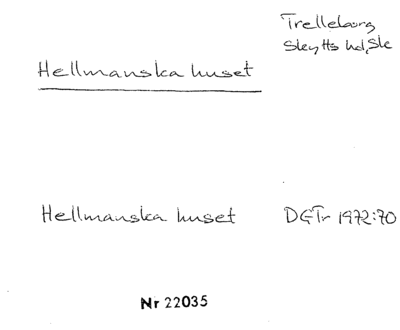 Trelleborg
Skytts hd, Sk
Hellmanska huset
Hellmanska huset DGTr 1972:70
Nr 22035